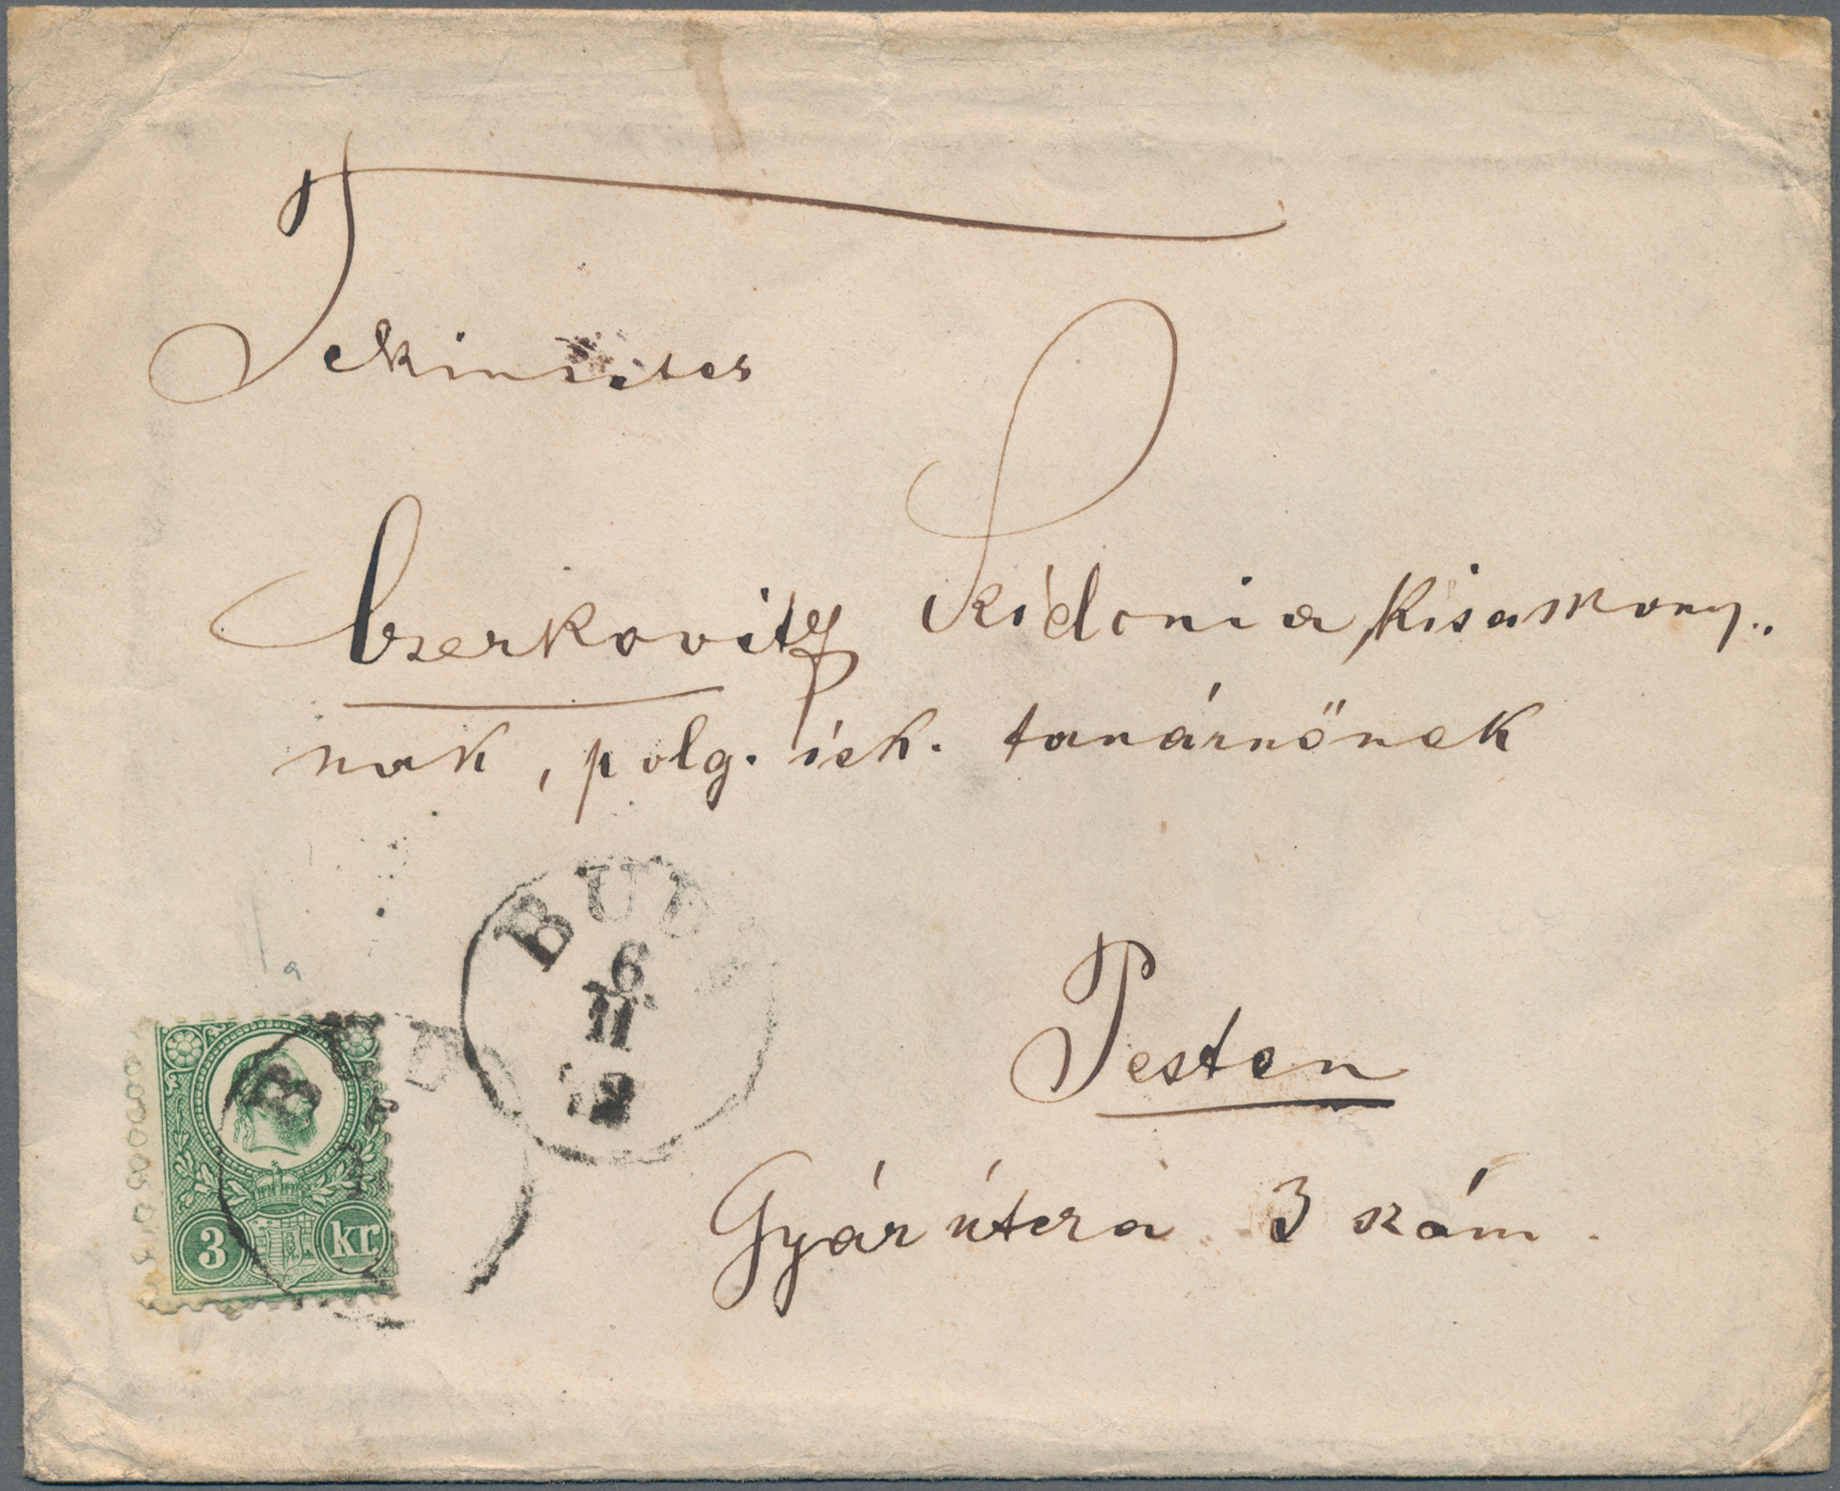 Tekintetes
Czerkovitz Szidonia kisasszony„
nak, polg. isk. tanárnőnek
BUD
6
11
72
Pesten
Gyár útcza 3 szám.
BUD
3 kr